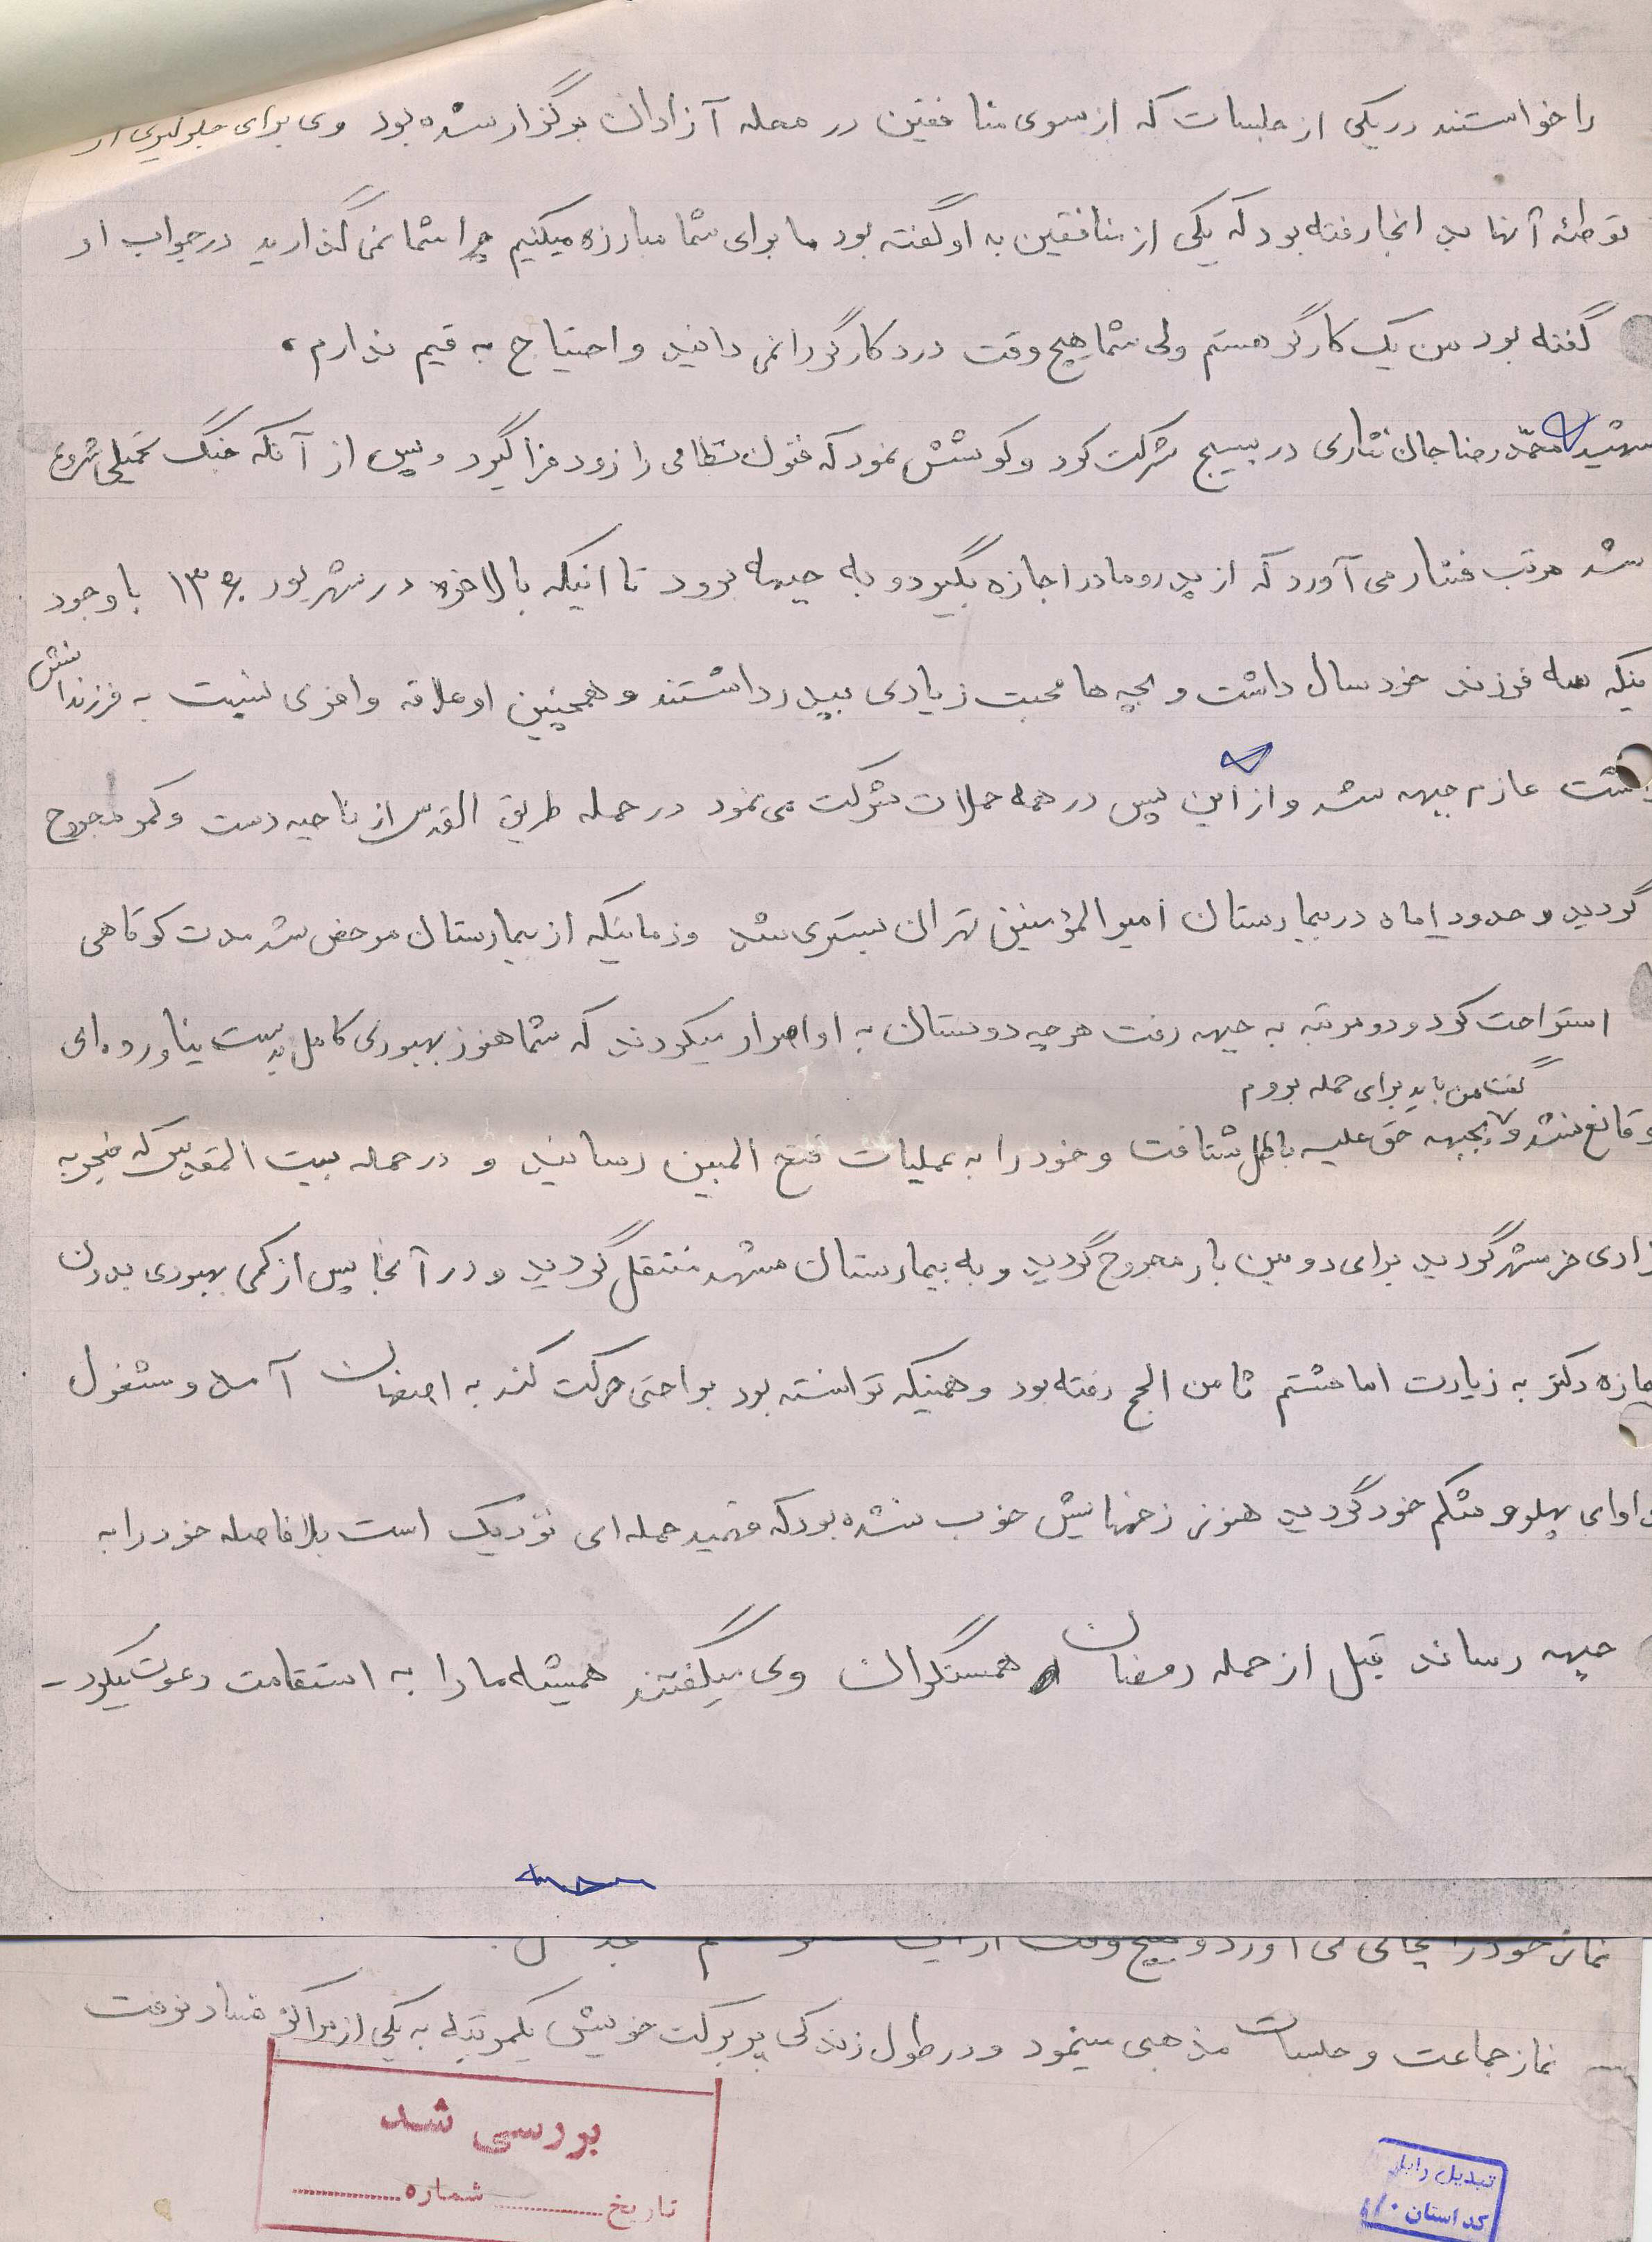 را خواستند در یکی از جلسات که از سوی منافقین در محله آزادان برگزار شده بود وی برای جلوگیری از
توطئه آنها بد انجا رفته بود که یکی از منافقین به او گفته بود ما برای شما مبارزه میکنیم چرا شما نمی گذارید در جواب او
گفته بود من یک کارگر هستم ولی شما هیچ وقت درد کارگر را نمی دانید و احتیاج به قیم ندارم.
شهید محمّد رضا جان نثاری در بسیج شرکت کرد و کوشش نمود که فنون نظامی را زود فرا گیرد و پس از آنکه جنگ تحمیلی شروع
شد مرتب فشار می آورد که از پدر و مادر اجازه بگیرد و به جبهه برود تا اینکه بالاخره در شهریور ۱۳۶۰ با وجود
ینکه سه فرزند خردسال داشت و بچه ها محبت زیادی بپدر داشتند و همچنین او علاقه وافری نسبت به فرزندانش
شت عازم جبهه شد و از این پس در همه حملات شرکت می نمود در حمله طریق القدس از ناحیه دست و کمر مجروح
گردید و حدود ۱ماه در بیمارستان امیرالمؤمنین تهران بستری شد و زمانیکه از بیمارستان مرخص شد مدت کوتاهی
استراحت کرد و دو مرتبه به جبهه رفت هر چه دوستان به او اصرار میکردند که شما هنوز بهبودی کامل بدست نیاورده ای
گفت من باید برای حمله بروم
و قانع نشد و بجبهه حق علیه باطل شتافت و خود را به عملیات فتح المبین رسانید و در حمله بیت المقدس که منجر به
زادی خرمشهر گردید برای دومین بار مجروح گردید و به بیمارستان مشهد منتقل گردید و در آنجا پس از کمی بهبودی بدون
جازه دکتر به زیارت امام هشتم ثامن الحج رفته بود و همینکه توانسته بود براحتی حرکت کند به اصفهان آمد و مشغول
داوای پهلو و شکم خود گردید هنوز زخمهایش خوب نشده بود که فهمید حمله ای نزدیک است بلافاصله خود را به
جبهه رساند قبل از حمله رمضان همسنگران وی میگفتند همیشه ما را به استقامت دعوت میکرد -
نماز خود را بجای می آورد و هیچ وقت از این
نماز جماعت و جلسات مذهبی مینمود و در طول زندگی پر برکت خویش یکمرتبه به یکی از مراکز فساد نرفت
بررسی شد
تاریخ .......... شماره ..........
تبدیل
کد استان